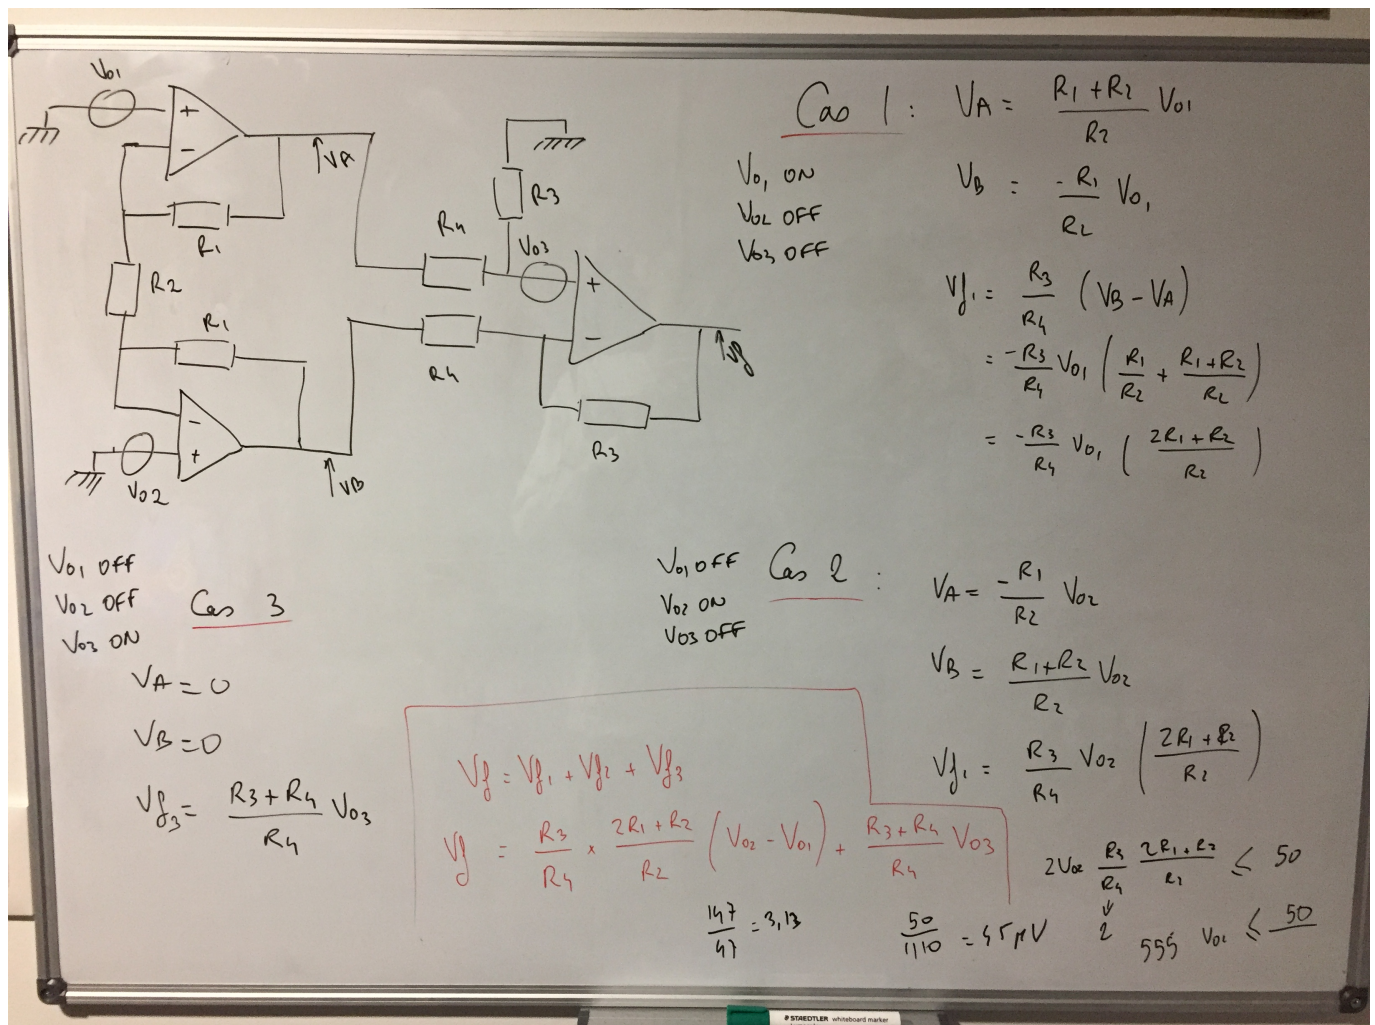 Vo1
+
-
VA
R1
R2
R1
-
+
Vo2
VB
R3
R4
Vo3
+
-
R4
Vf
R3
Cas 1 :
Vo1 ON
Vo2 OFF
Vo3 OFF
VA = (R1+R2)/R2 Vo1
VB = -R1/R2 Vo1
Vf1 = R3/R4 (VB - VA)
= -R3/R4 Vo1 (R1/R2 + (R1+R2)/R2)
= -R3/R4 Vo1 ((2R1+R2)/R2)
Vo1 OFF
Vo2 ON
Vo3 OFF
Cas 2 :
VA = -R1/R2 Vo2
VB = (R1+R2)/R2 Vo2
Vf1 = R3/R4 Vo2 ((2R1+R2)/R2)
Vo1 OFF
Vo2 OFF
Vo3 ON
Cas 3
VA = 0
VB = 0
Vf3 = (R3+R4)/R4 Vo3
Vf = Vf1 + Vf2 + Vf3
Vf = R3/R4 × (2R1+R2)/R2 (Vo2 - Vo1) + (R3+R4)/R4 Vo3
147/47 = 3,13
50/1110 = 45 µV
2Vo2 R3/R4 (2R1+R2)/R2 ≤ 50
2
555 Vo2 ≤ 50
STAEDTLER whiteboard marker